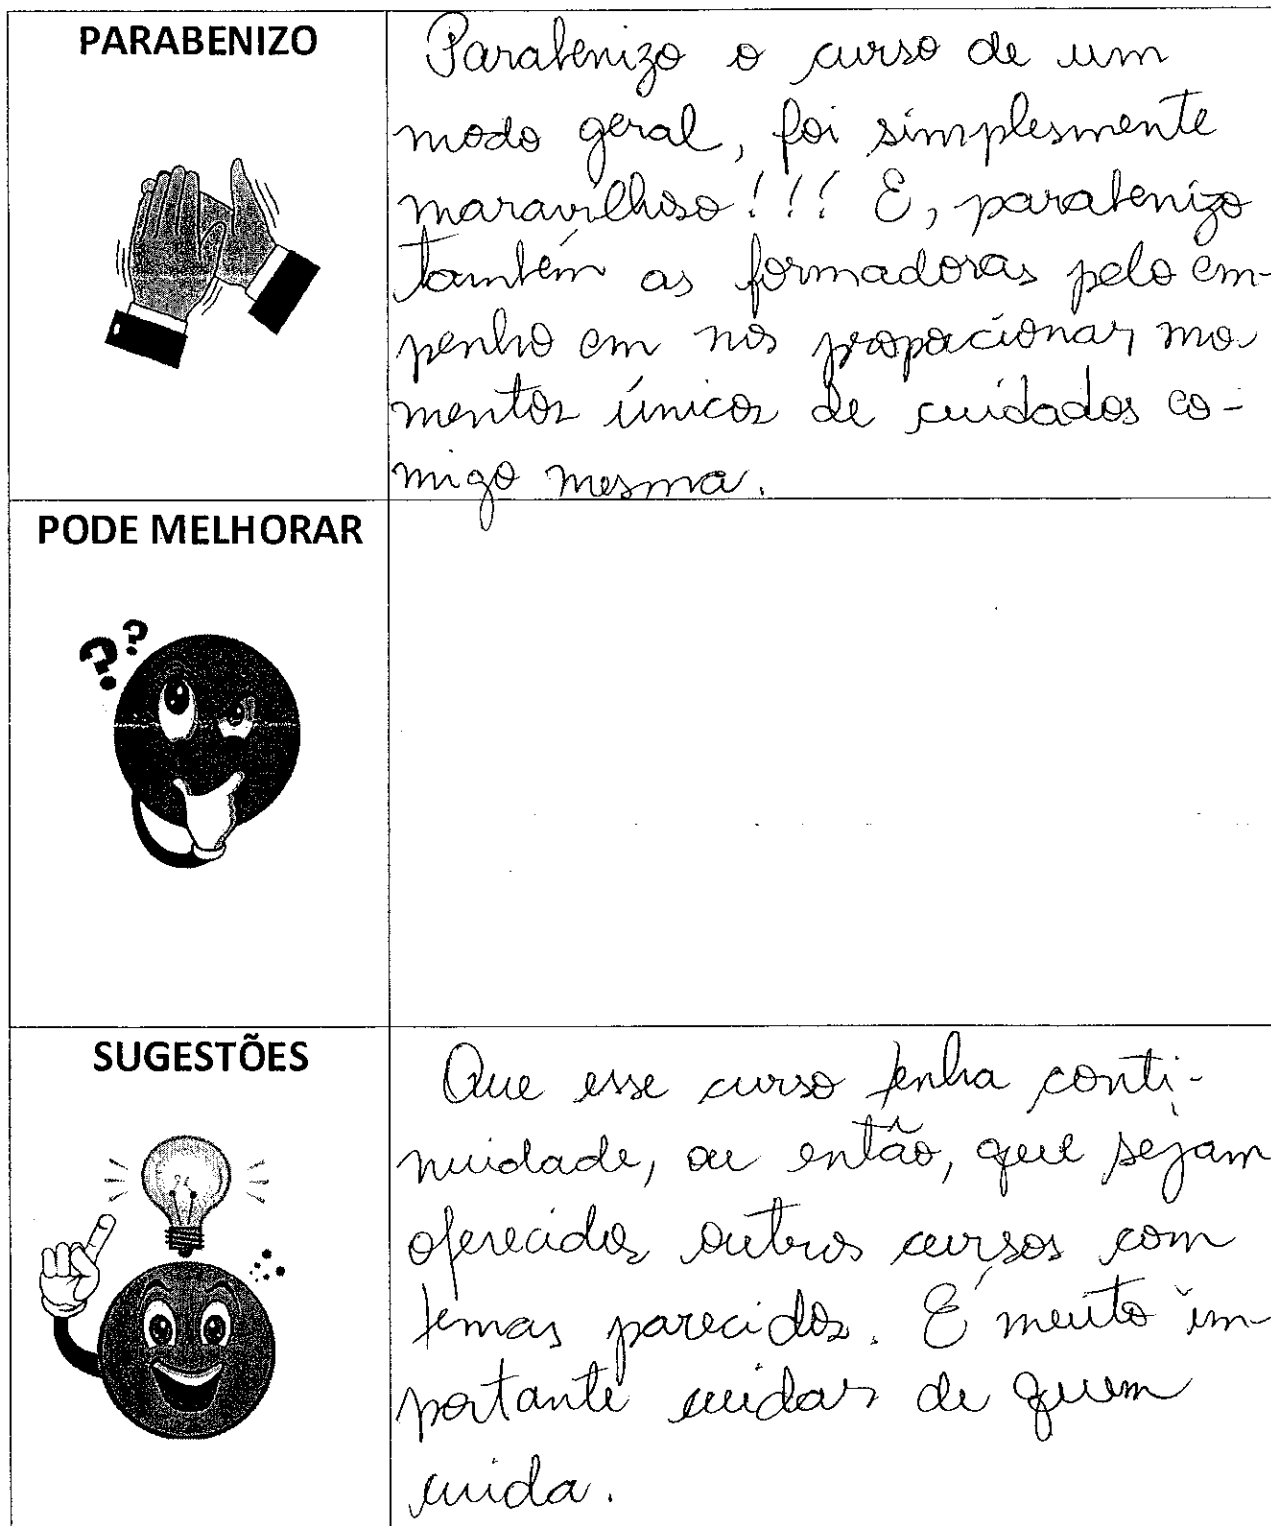 PARABENIZO
Parabenizo o curso de um
modo geral, foi simplesmente
maravilhoso!!! E, parabenizo
também as formadoras pelo em-
penho em nos propocionar mo-
mentos únicos de cuidados co-
migo mesma.
PODE MELHORAR
??
SUGESTÕES
Que esse curso tenha conti-
nuidade, ou então, que sejam
oferecidos outros cursos com
temas parecidos. É muito im-
portante cuidar de quem
cuida.